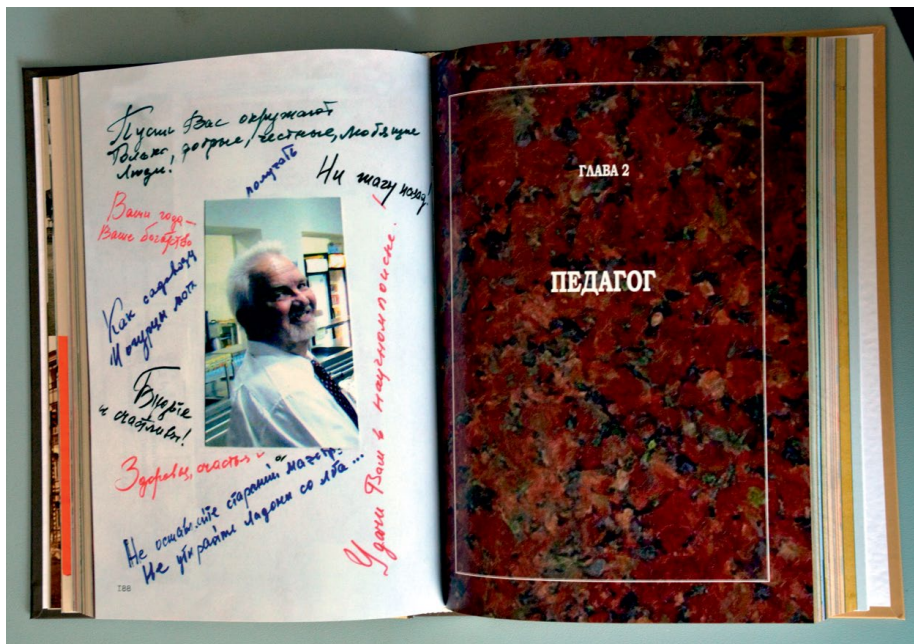 Пусть Вас окружают
добрые, честные, любящие
люди!
получать
Ни шагу назад!
Ваши года —
Ваше богатство
Как садовод
Будьте
и счастливы!
Здоровья, счастья и
Не оставляйте стараний маэстро
Не убирайте ладони со лба...
Удачи Вам в научном поиске!
188
ГЛАВА 2
ПЕДАГОГ